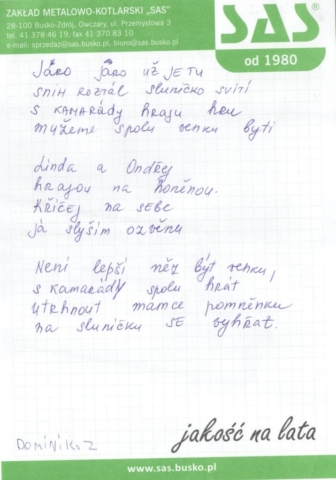 ZAKŁAD METALOWO-KOTLARSKI „SAS"
28-100 Busko-Zdrój, Owczary, ul. Przemysłowa 3
tel. 41 378 46 19, fax 41 370 83 10
e-mail: sprzedaz@sas.busko.pl, biuro@sas.busko.pl
SAS
od 1980
Jaro jaro už je tu
sníh roztál sluníčko svítí
s kamarády hraju hru
můžeme spolu venku býti
Linda a Ondřej
hrajou na honěnou.
Křičej na sebe
já slyším ozvěnu
Není lepší něž být venku,
s kamarády spolu hrát
utrhnout mamce pomněnku
na sluníčku se vyhřát.
Dominik Z
jakość na lata
www.sas.busko.pl